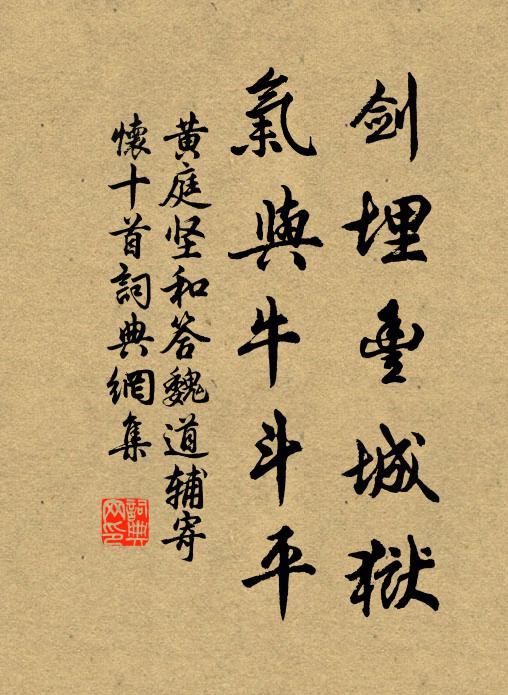 剑埋豐城獄
氣與牛斗平
黄庭坚和答魏道辅寄
懷十首詞典網集
詞典
网印